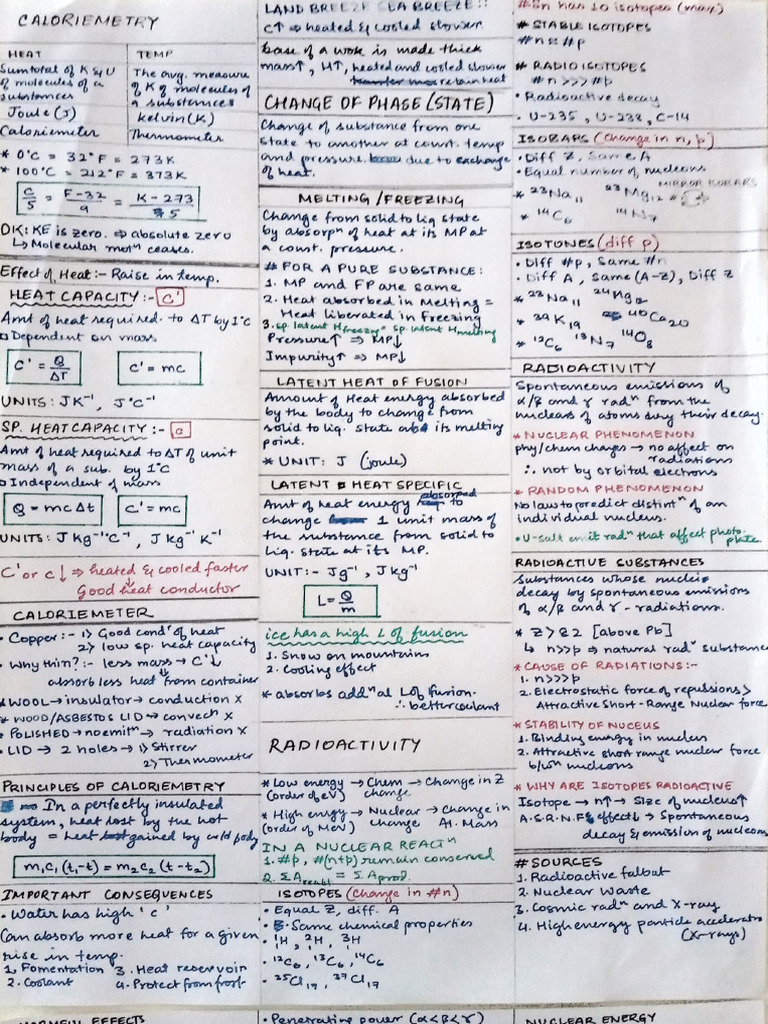 CALORIEMETRY
HEAT
Sumtotal of K & U
of molecules of a
substances
Joule (J)
Caloriemeter
TEMP
The avg. measure
of K of molecules of
a substances
kelvin (K)
Thermometer
* 0°C = 32°F = 273K
* 100°C = 212°F = 373K
C/5 = F-32/9 = K-273/5
OK: KE is zero. ⇒ absolute zero
↳ Molecular motⁿ ceases.
Effect of Heat:- Raise in temp.
HEAT CAPACITY :- C'
Amt of heat required to ΔT by 1°C
□ Dependent on mass
C' = Q/ΔT
C' = mc
UNITS: JK⁻¹, J°C⁻¹
SP. HEAT CAPACITY :- c
Amt of heat required to ΔT of unit
mass of a sub. by 1°C
□ Independent of mass
Q = mcΔt
C' = mc
UNITS: J Kg⁻¹°C⁻¹, J Kg⁻¹ K⁻¹
C' or c↓ ⇒ heated & cooled faster
Good heat conductor
CALORIEMETER
• Copper:- 1) Good condʳ of heat
2) low sp. heat capacity
• Why thin?:- less mass → C'↓
absorb less heat from container
* WOOL → insulator → conduction X
* WOOD/ASBESTOS LID → convecⁿ X
* POLISHED → no emitⁿ → radiation X
• LID → 2 holes → 1) Stirrer
2) Thermometer
PRINCIPLES OF CALORIEMETRY
In a perfectly insulated
system, heat lost by the hot
body = heat gained by cold body
m₁c₁(t₁-t) = m₂c₂(t-t₂)
IMPORTANT CONSEQUENCES
• Water has high 'c'
Can absorb more heat for a given
rise in temp.
1. Fomentation 3. Heat reservoir
2. Coolant 4. Protect from frost
LAND BREEZE SEA BREEZE ::
C↑ ⇒ heated & cooled slower.
base of a wok is made thick
mass↑, H↑, heated and cooled slower
retain heat
CHANGE OF PHASE (STATE)
Change of substance from one
state to another at const. temp
and pressure due to exchange
of heat.
MELTING/FREEZING
Change from solid to liq state
by absorpⁿ of heat at its MP at
a const. pressure.
# FOR A PURE SUBSTANCE:
1. MP and FP are same
2. Heat absorbed in Melting =
Heat liberated in Freezing
3. sp. latent H freezing = sp. latent H melting
Pressure↑ ⇒ MP↓
Impurity↑ ⇒ MP↓
LATENT HEAT OF FUSION
Amount of Heat energy absorbed
by the body to change from
solid to liq. state at its melting
point.
* UNIT: J (joule)
LATENT HEAT SPECIFIC
Amt of heat energy absorbed to
change 1 unit mass of
the substance from solid to
liq. state at its MP.
UNIT:- Jg⁻¹, JKg⁻¹
L = Q/m
ice has a high L of fusion
1. Snow on mountains
2. Cooling effect
* absorbs addⁿal L of fusion.
∴ better coolant
RADIOACTIVITY
* Low energy → Chem → Change in Z
(order of eV) change
* High energy → Nuclear → Change in
(order of MeV) change At. Mass
IN A NUCLEAR REACTⁿ
1. #p, #(n+p) remain conserved
2. ΣA react = ΣA prod.
ISOTOPES (change in #n)
• Equal Z, diff. A
• Same chemical properties
• ¹H, ²H, ³H
• ¹²C₆, ¹³C₆, ¹⁴C₆
• ³⁵Cl₁₇, ³⁷Cl₁₇
• Penetrating power (α<β<γ)
#Sn has 10 isotopes (max)
# STABLE ISOTOPES
#n ≈ #p
# RADIO ISOTOPES
#n >>> #p
• Radioactive decay
• U-235, U-238, C-14
ISOBARS (Change in n, p)
• Diff Z, Same A
• Equal number of nucleons
MIRROR ISOBARS
* ²³Na₁₁ ²³Mg₁₂
* ¹⁴C₆ ¹⁴N₇
ISOTONES (diff p)
• Diff #p, Same #n
• Diff A, Same (A-Z), Diff Z
* ²³Na₁₁ ²⁴Mg₁₂
* ³⁹K₁₉ ⁴⁰Ca₂₀
* ¹²C₆ ¹³N₇ ¹⁴O₈
RADIOACTIVITY
Spontaneous emissions of
α/β and γ radⁿ from the
nucleus of atoms during their decay.
* NUCLEAR PHENOMENON
phy/chem changes → no affect on
radiations
∴ not by orbital electrons
* RANDOM PHENOMENON
No law to predict distintⁿ of an
individual nucleus.
• U-salt emit radⁿ that affect photo-
plate
RADIOACTIVE SUBSTANCES
Substances whose nuclei
decay by spontaneous emissions
of α/β and γ-radiations.
* Z > 82 [above Pb]
↳ n>>p ⇒ natural radᵛ substance
* CAUSE OF RADIATIONS:-
1. n>>>p
2. Electrostatic force of repulsions >
Attractive Short-Range Nuclear force
* STABILITY OF NUCEUS
1. Binding energy in nucleus
2. Attractive short range nuclear force
b/wⁿ nucleons
* WHY ARE ISOTOPES RADIOACTIVE
Isotope → n↑ → Size of nucleus↑
A.S.R.N.F effect↓ → Spontaneous
decay & emission of nucleons
# SOURCES
1. Radioactive fallout
2. Nuclear waste
3. Cosmic radⁿ and X-ray
4. High energy particle accelerators
(X-rays)
NUCLEAR ENERGY